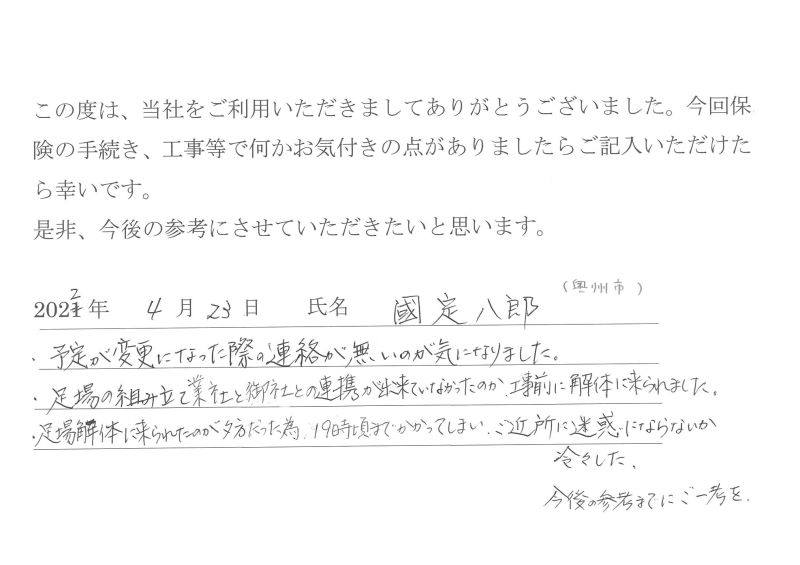 この度は、当社をご利用いただきましてありがとうございました。今回保
険の手続き、工事等で何かお気付きの点がありましたらご記入いただけた
ら幸いです。
是非、今後の参考にさせていただきたいと思います。
(奥州市)
2022年 4月23日 氏名 國定八郎
・予定が変更になった際の連絡が無いのが気になりました。
・足場の組み立て業社と御社との連携が出来ていなかったのか、工事前に解体に来られました。
・足場解体に来られたのが夕方だった為、19時頃までかかってしまい、ご近所に迷惑にならないか
冷々した、
今後の参考までにご一考を.